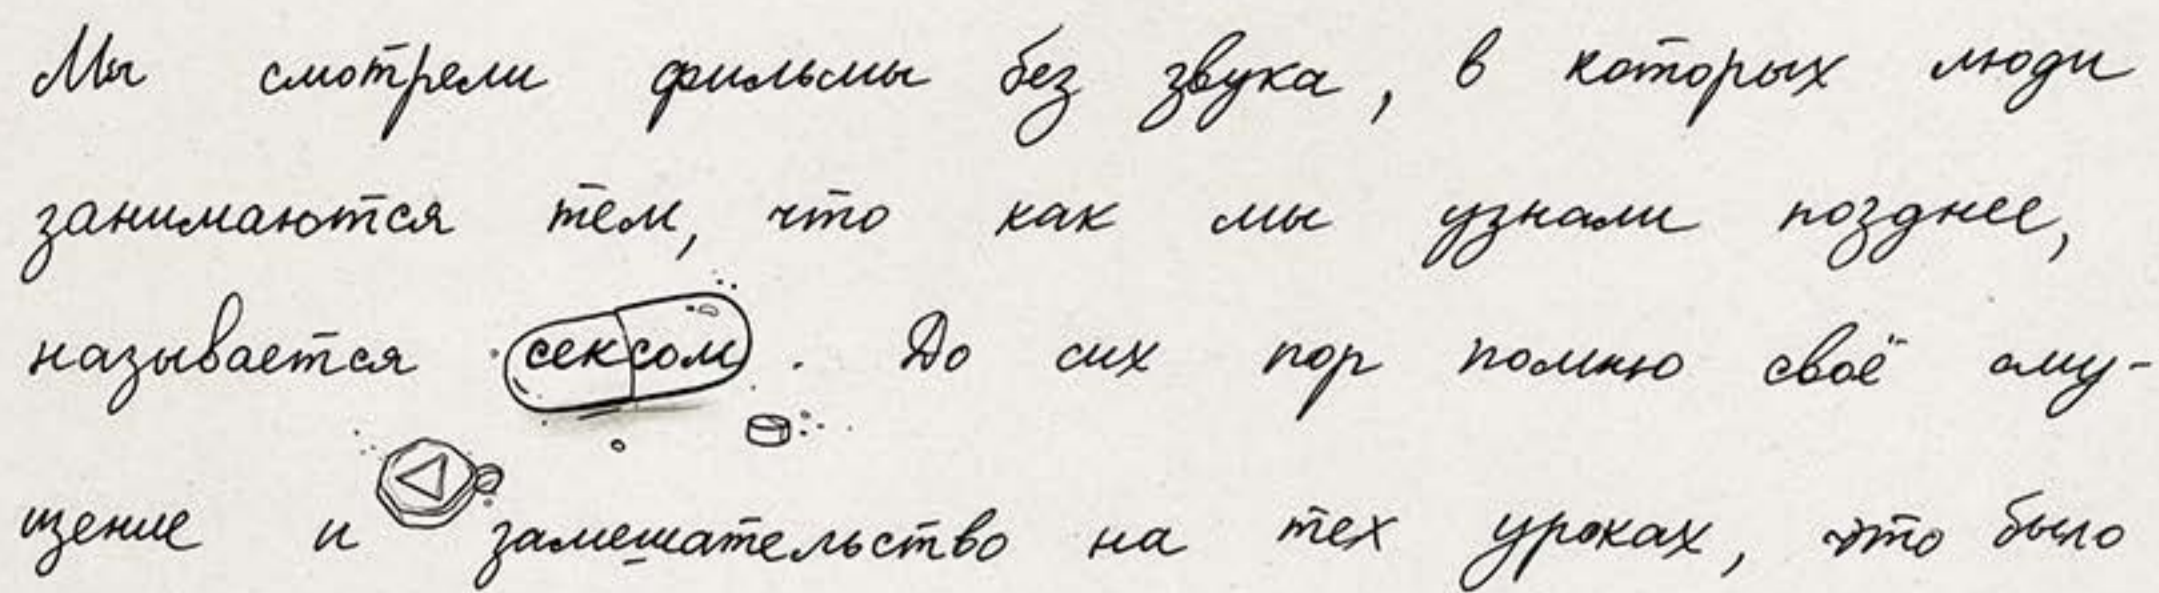 Мы смотрели фильмы без звука, в которых люди
занимаются тем, что как мы узнали позднее,
называется сексом. До сих пор помню своё сму-
щение и замешательство на тех уроках, это было